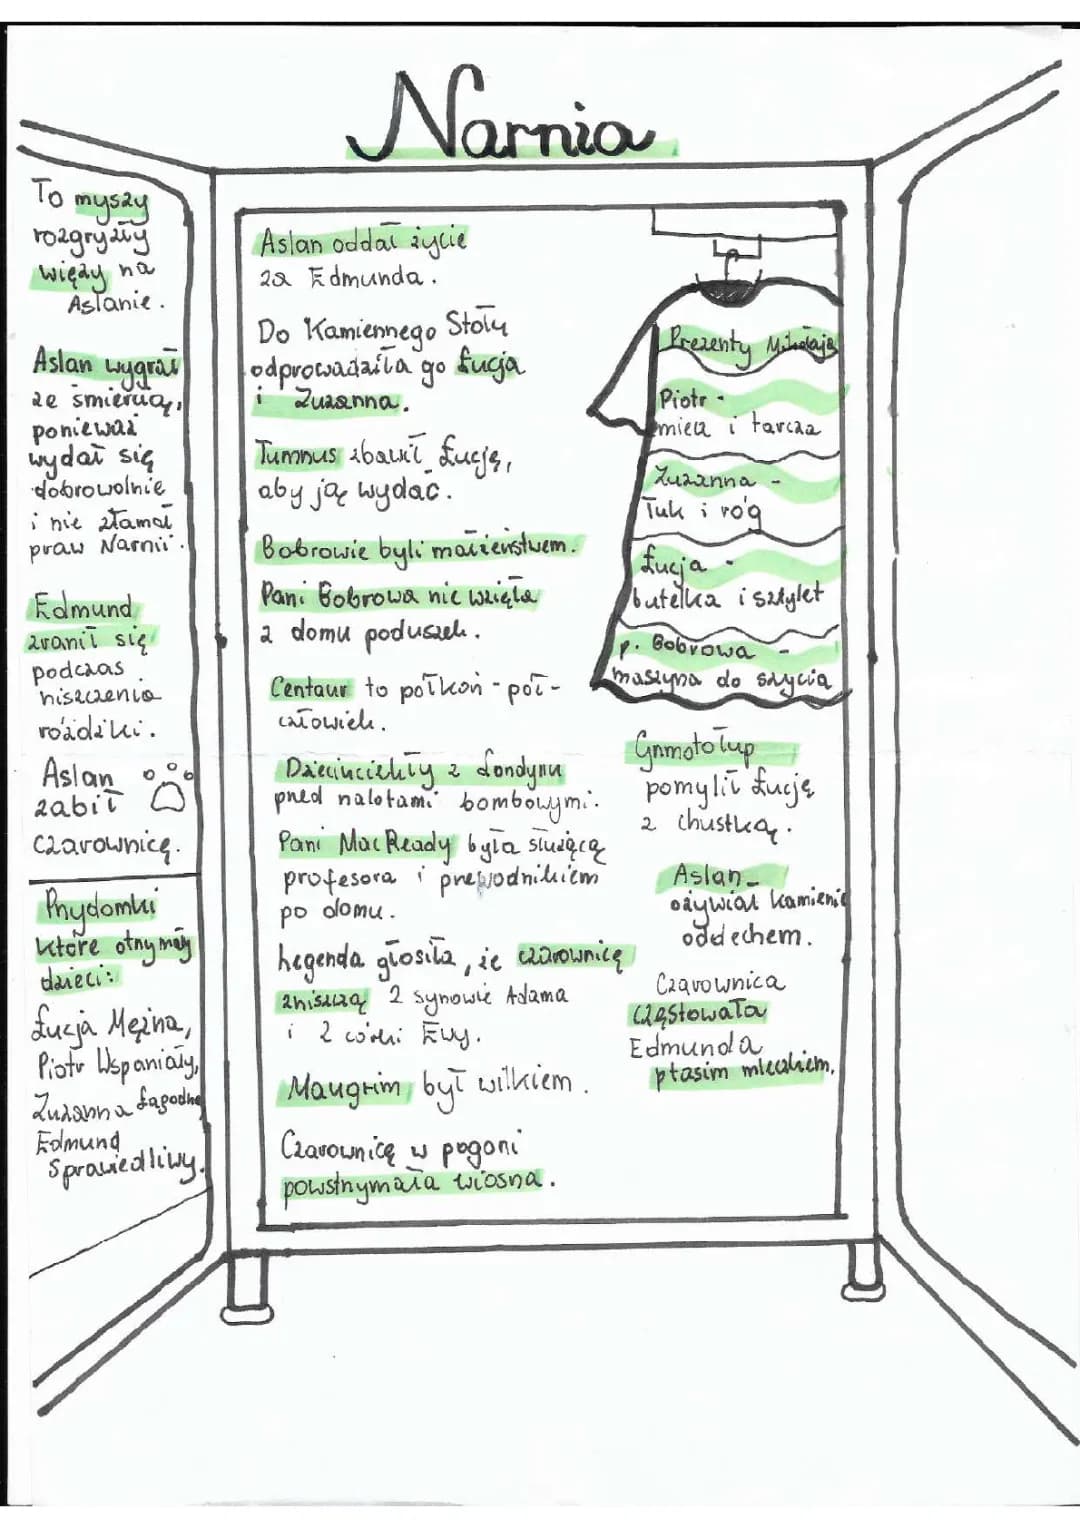 Narnia
To myszy
rozgryzły
więzy na
Aslanie.
Aslan wygrał
ze śmiercią,
ponieważ
wydał się
dobrowolnie
i nie złamał
praw Narnii.
Edmund
zranił się
podczas
niszczenia
różdżki.
Aslan
zabił
czarownicę.
Przydomki
które otrzymały
dzieci:
Łucja Mężna,
Piotr Wspaniały,
Zuzanna Łagodna
Edmund
Sprawiedliwy.
Aslan oddał życie
za Edmunda.
Do Kamiennego Stołu
odprowadziła go Łucja
i Zuzanna.
Tumnus zbawił Łucję,
aby ją wydać.
Bobrowie byli małżeństwem.
Pani Bobrowa nie wzięła
z domu poduszek.
Centaur to półkoń - pół-
człowiek.
Dzieci uciekły z Londynu
przed nalotami bombowymi.
Pani MacReady była służącą
profesora i przewodnikiem
po domu.
Legenda głosiła, że czarownicę
zniszczą 2 synowie Adama
i 2 córki Ewy.
Maugrim był wilkiem.
Czarownicę w pogoni
powstrzymała wiosna.
Prezenty Mikołaja
Piotr -
miecz i tarcza
Zuzanna -
łuk i róg
Łucja -
butelka i sztylet
p. Bobrowa -
maszyna do szycia
Grzmotołup
pomylił Łucję
z chustką.
Aslan
ożywiał kamienie
oddechem.
Czarownica
częstowała
Edmunda
ptasim mleczkiem.